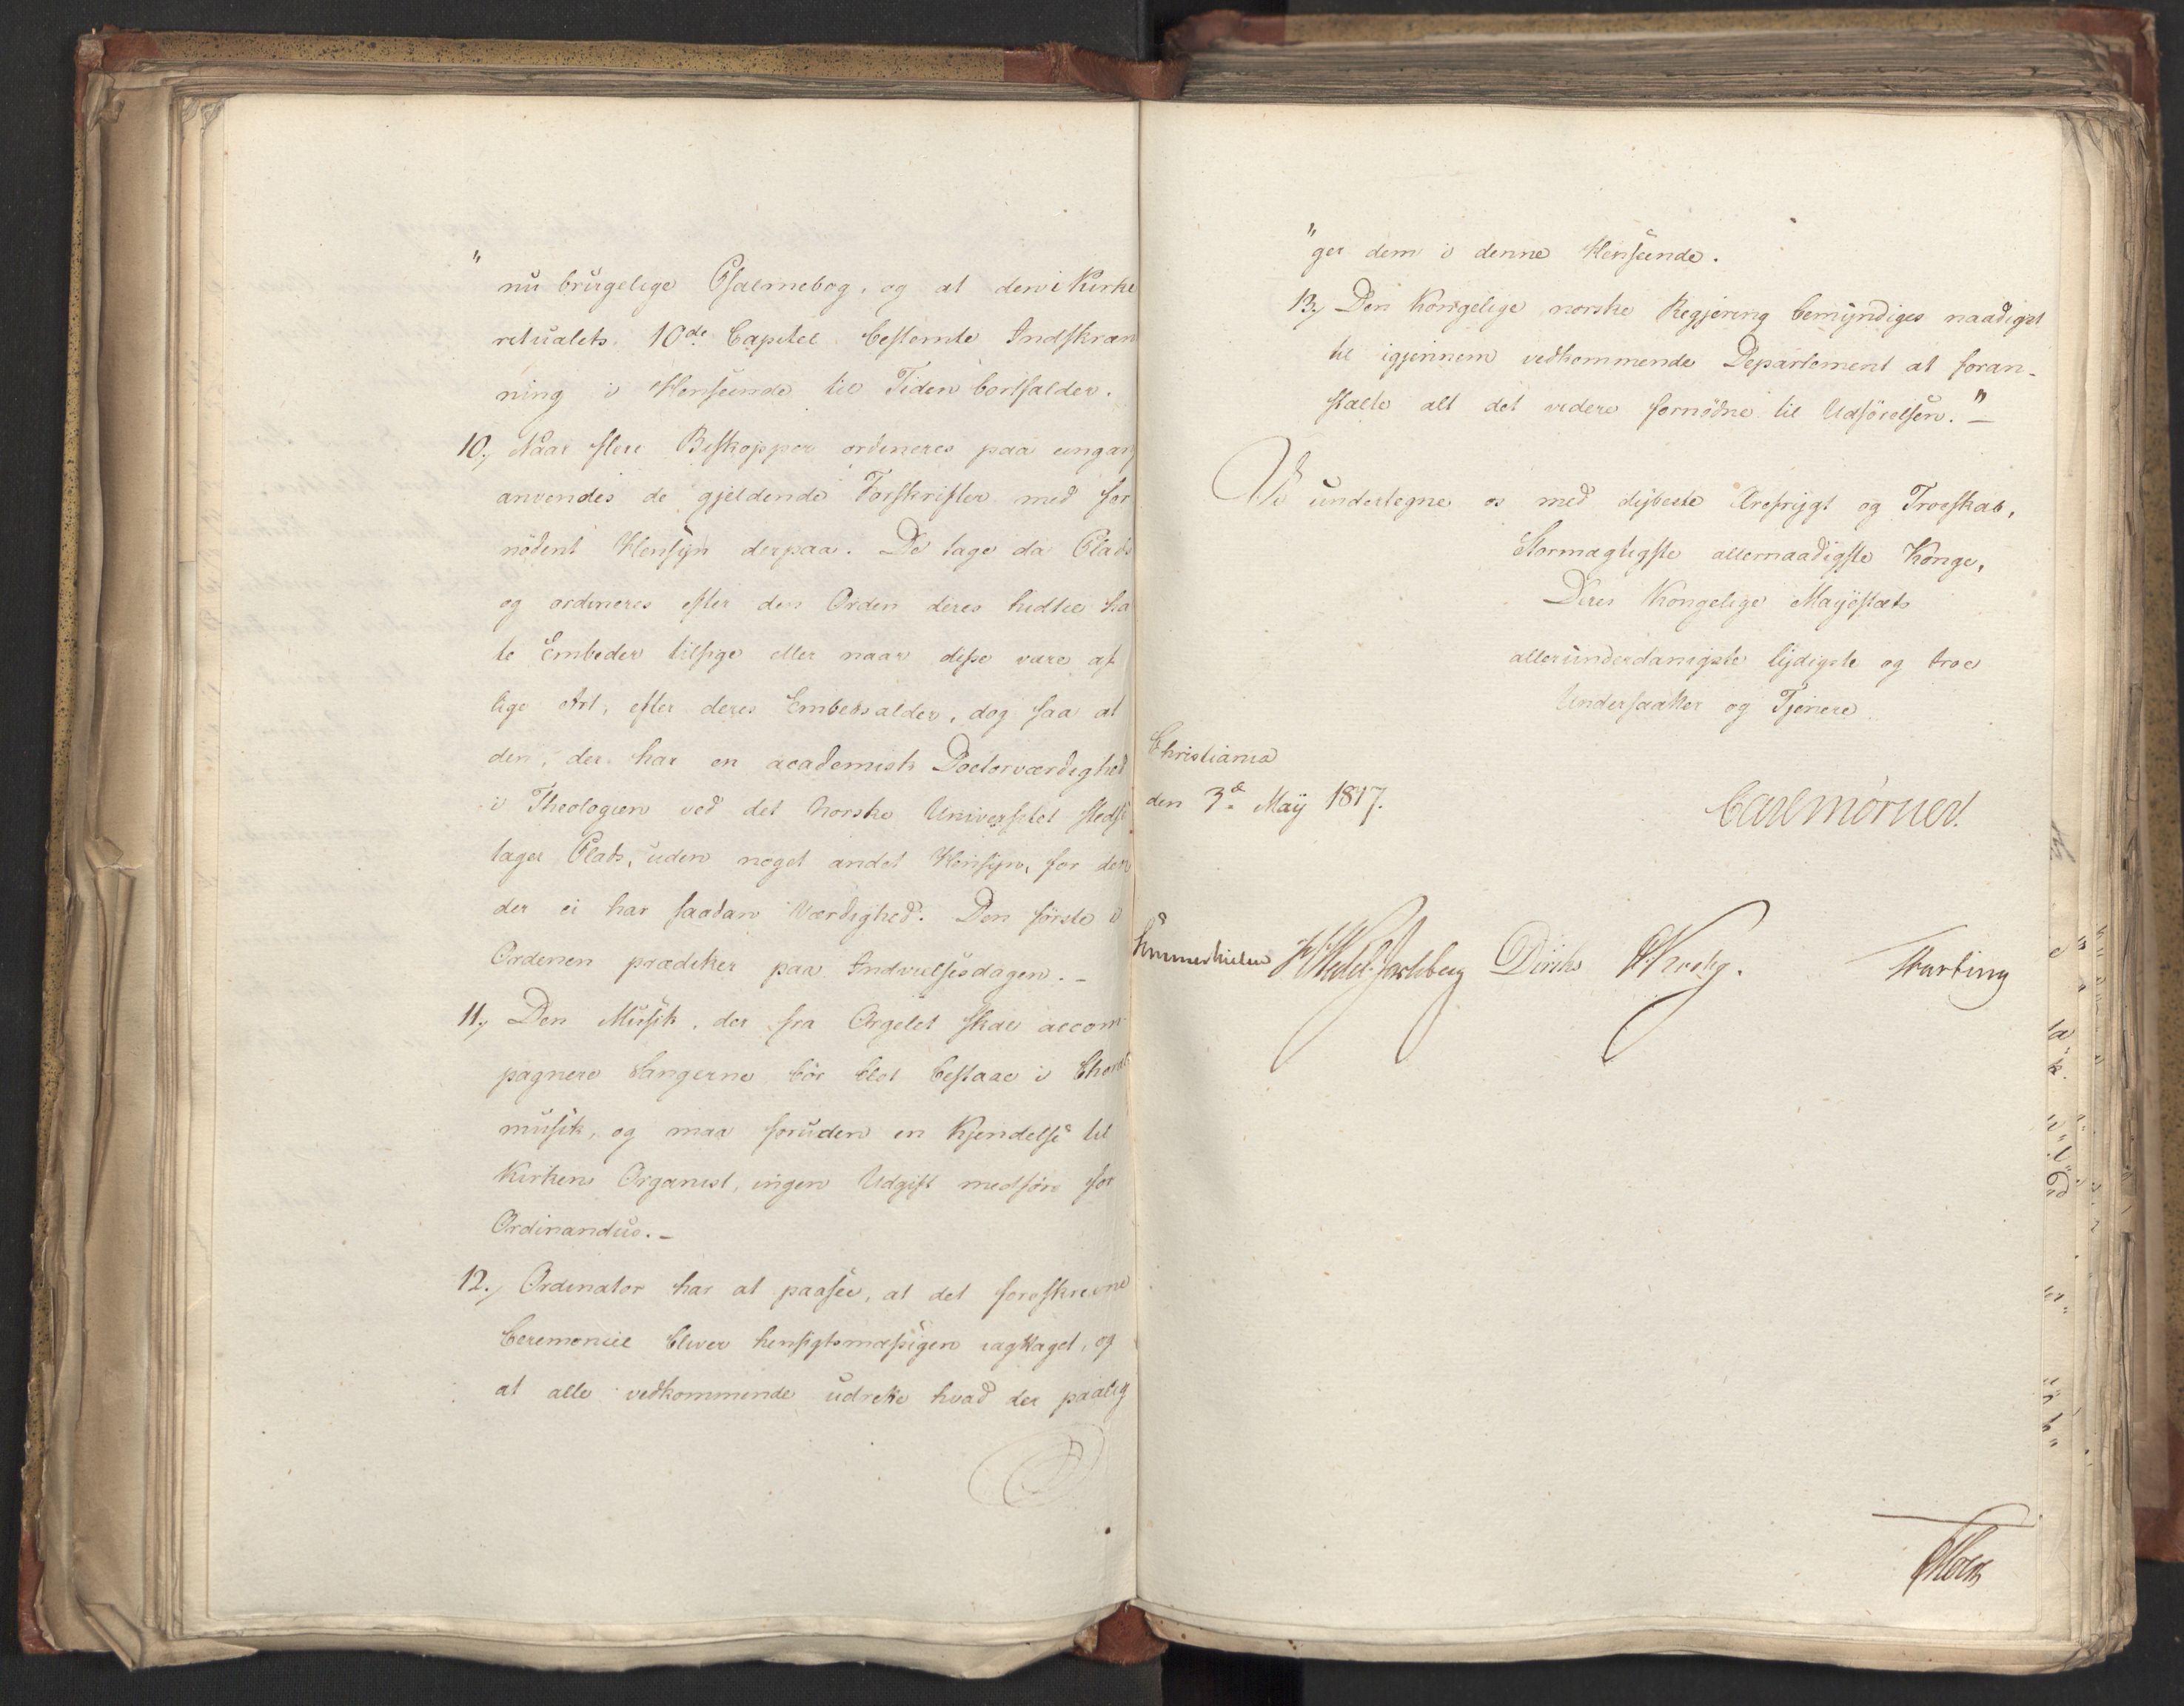 "
nu brugelige Psalmebog, og at den i Kirke
ritualets 10de Capitel bestemte Indskræn
ning i Henseende til Tiden bortfalder.
10., Naar flere Biskopper ordineres paa eengang
anvendes de gjeldende Forskrifter med for
nødent Hensyn derpaa. De tage da Plads
og ordineres efter den Orden deres hidtil hav
te Embeder tilsige eller naar disse være af
lige Art, efter deres Embedsalder, dog saa at
den, der har en academisk Doctorværdighed
i Theologien ved det norske Universitet stedse
tager Plads, uden noget andet Hensyn, for den
der ei har saadan Værdighed. Den første i
Ordenen prædiker paa Indvielsesdagen. -
11., Den Musik, der fra Orgelet skal accom
pagnere Sangerne bør blot bestaae i Choral
musik, og maa foruden en Kjendelse til
Kirkens Organist, ingen Udgift medføre for
Ordinandus. -
12., Ordinator har at paasee, at det foreskrevne
Ceremoniel bliver hensigtsmæssigen iagttaget, og
at alle vedkommende udrette hvad der paalig
"ger dem i denne Henseende.
13., Den Kongelige norske Regjering bemyndiges naadigst
til igjennem vedkommende Departement at foran-
stalte alt det videre fornødne til Udførelsen." -
Vi undertegne os med dybeste Ærefrygt og Troeskab,
Stormægtigste allernaadigste Konge,
Deres Kongelige Majestæts
allerunderdanigste lydigste og troe
Undersaatter og Tjenere
Christiania
den 3d May 1817.
Carl Mörner.
Sommerhielm HWedel Jarlsberg Diriks Krohg.
Holst